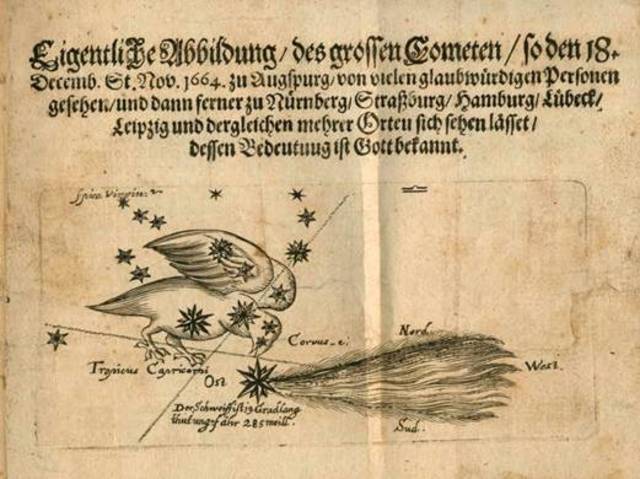 Eigentliche Abbildung / des grossen Cometen / so den 18.
Decemb. St. Nov. 1664. zu Augspurg / von vielen glaubwürdigen Personen
gesehen / und dann ferner zu Nürnberg / Straßburg / Hamburg / Lübeck /
Leipzig und dergleichen mehrer Orten sich sehen lässet /
dessen Bedeutuug ist Gott bekannt.
Spica Virginis
Corvus
Nord.
West.
Tropicus Capricorni
Ost
Der Schweiff ist 13 Grad lang
thut ungefähr 285 meill.
Sud.